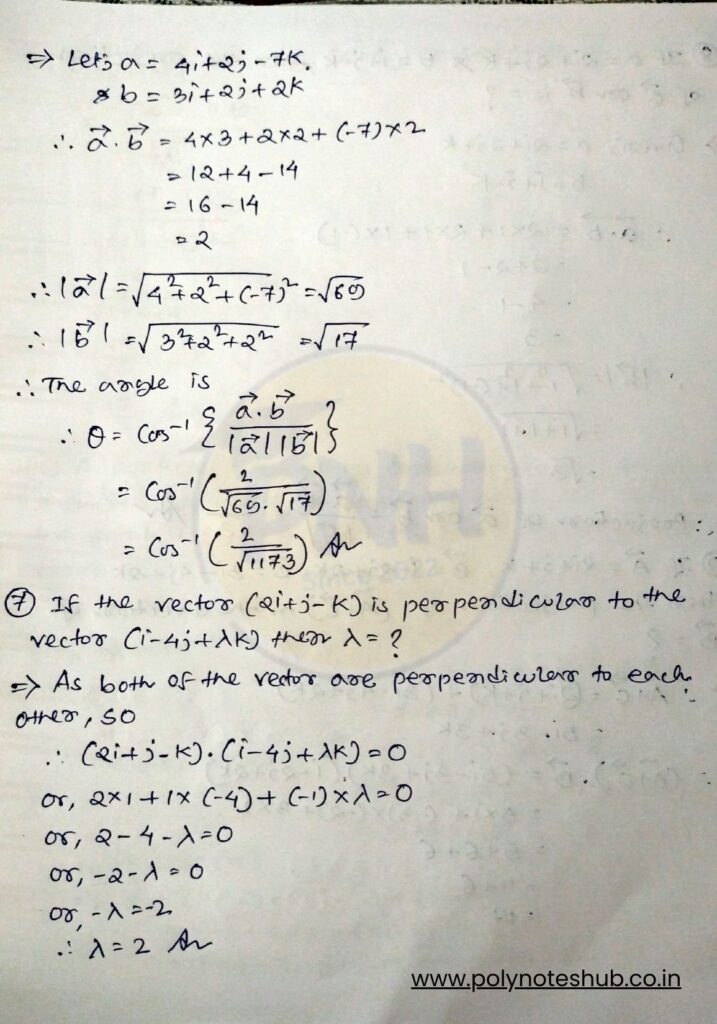 ⇒ Let, a = 4i+2j-7k.
& b = 3i+2j+2k
∴ a⃗.b⃗ = 4×3+2×2+(-7)×2
= 12+4-14
= 16-14
= 2
∴ |a⃗| = √4²+2²+(-7)² = √69
∴ |b⃗| = √3²+2²+2² = √17
∴ The angle is
∴ θ = Cos⁻¹ { a⃗.b⃗ / |a⃗||b⃗| }
= Cos⁻¹ ( 2 / √69.√17 )
= Cos⁻¹ ( 2 / √1173 ) Ar
⑦ If the vector (2i+j-k) is perpendicular to the
vector (i-4j+λk) then λ = ?
⇒ As both of the vector are perpendicular to each
other, so
∴ (2i+j-k).(i-4j+λk) = 0
or, 2×1+1×(-4)+(-1)×λ=0
or, 2-4-λ=0
or, -2-λ=0
or, -λ=-2
∴ λ = 2 Ar
www.polynoteshub.co.in